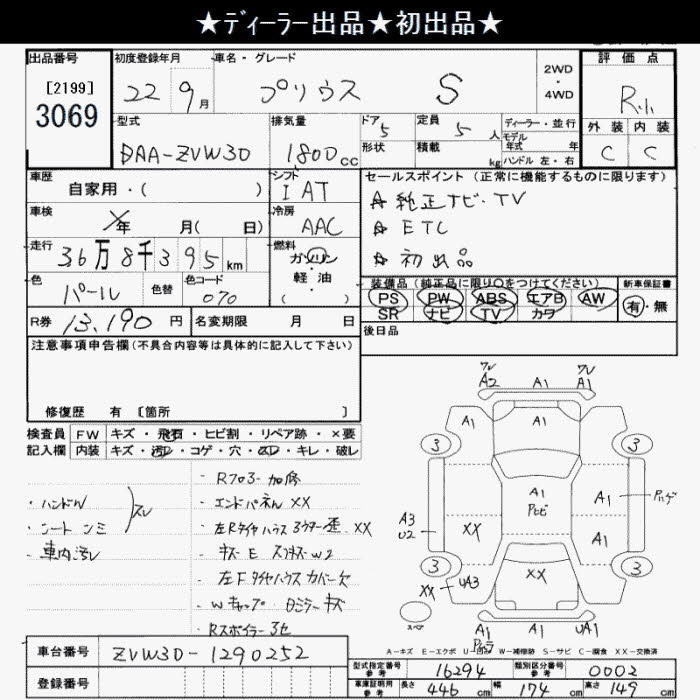 ★ディーラー出品★初出品★
出品番号
[2199]
3069
初度登録年月
22 9月
車名・グレード
プリウス S
2WD
・
4WD
評価点
R小
外装 内装
C C
型式
DAA-ZVW30
排気量
1800cc
ドア
5
形状
定員
5人
積載
kg
ディーラー・並行
モデル
年式 年
ハンドル 左・右
車歴
自家用・( )
シフト
I AT
車検
年 月( 日)
冷房
AAC
走行
36万8千395km
燃料
ガソリン
軽・油
( ・ )
色
パール
色替
色コード
070
R券 13,190円
名変期限 月 日
セールスポイント(正常に機能するものに限ります)
☆ 純正ナビ・TV
☆ ETC
☆ 初出品
装備品(純正品に限り○をつけてください)
PS PW ABS エアB AW
SR ナビ TV カワ
新車保証書
有・無
後日品
注意事項申告欄(不具合内容等は具体的に記入して下さい)
修復歴 有 [箇所 ]
検査員 FW キズ・飛石・ヒビ割・リペア跡・×要
記入欄 内装 キズ・汚れ・コゲ・穴・スレ・キレ・破レ
・ハンドル
・シート シミ
スレ
・車内汚レ
・Rフロアー加修
・エンドパネル XX
・左Rタイヤハウス インナー歪 XX
・左Fタイヤハウスカバー欠
・Wキャップ 日ミラーキズ
・Rスポイラー3セ
ワレ
A2
A1
ワレ
A1
A1
A1
3
3
A1
Pトビ
A1
Pハゲ
A3
U2
XX
A1
3
3
XX
UA3
XX
スペア
A1
A1
UA1
A-キズ E-エクボ U-凹み W-補修跡 S-サビ C-腐食 XX-交換済
車台番号 ZVW30-1290252
登録番号
型式指定番号
参考
16294
類別区分番号
参考
0002
車庫証明用
参考
長さ 446 cm 幅 174 cm 高さ 149 cm